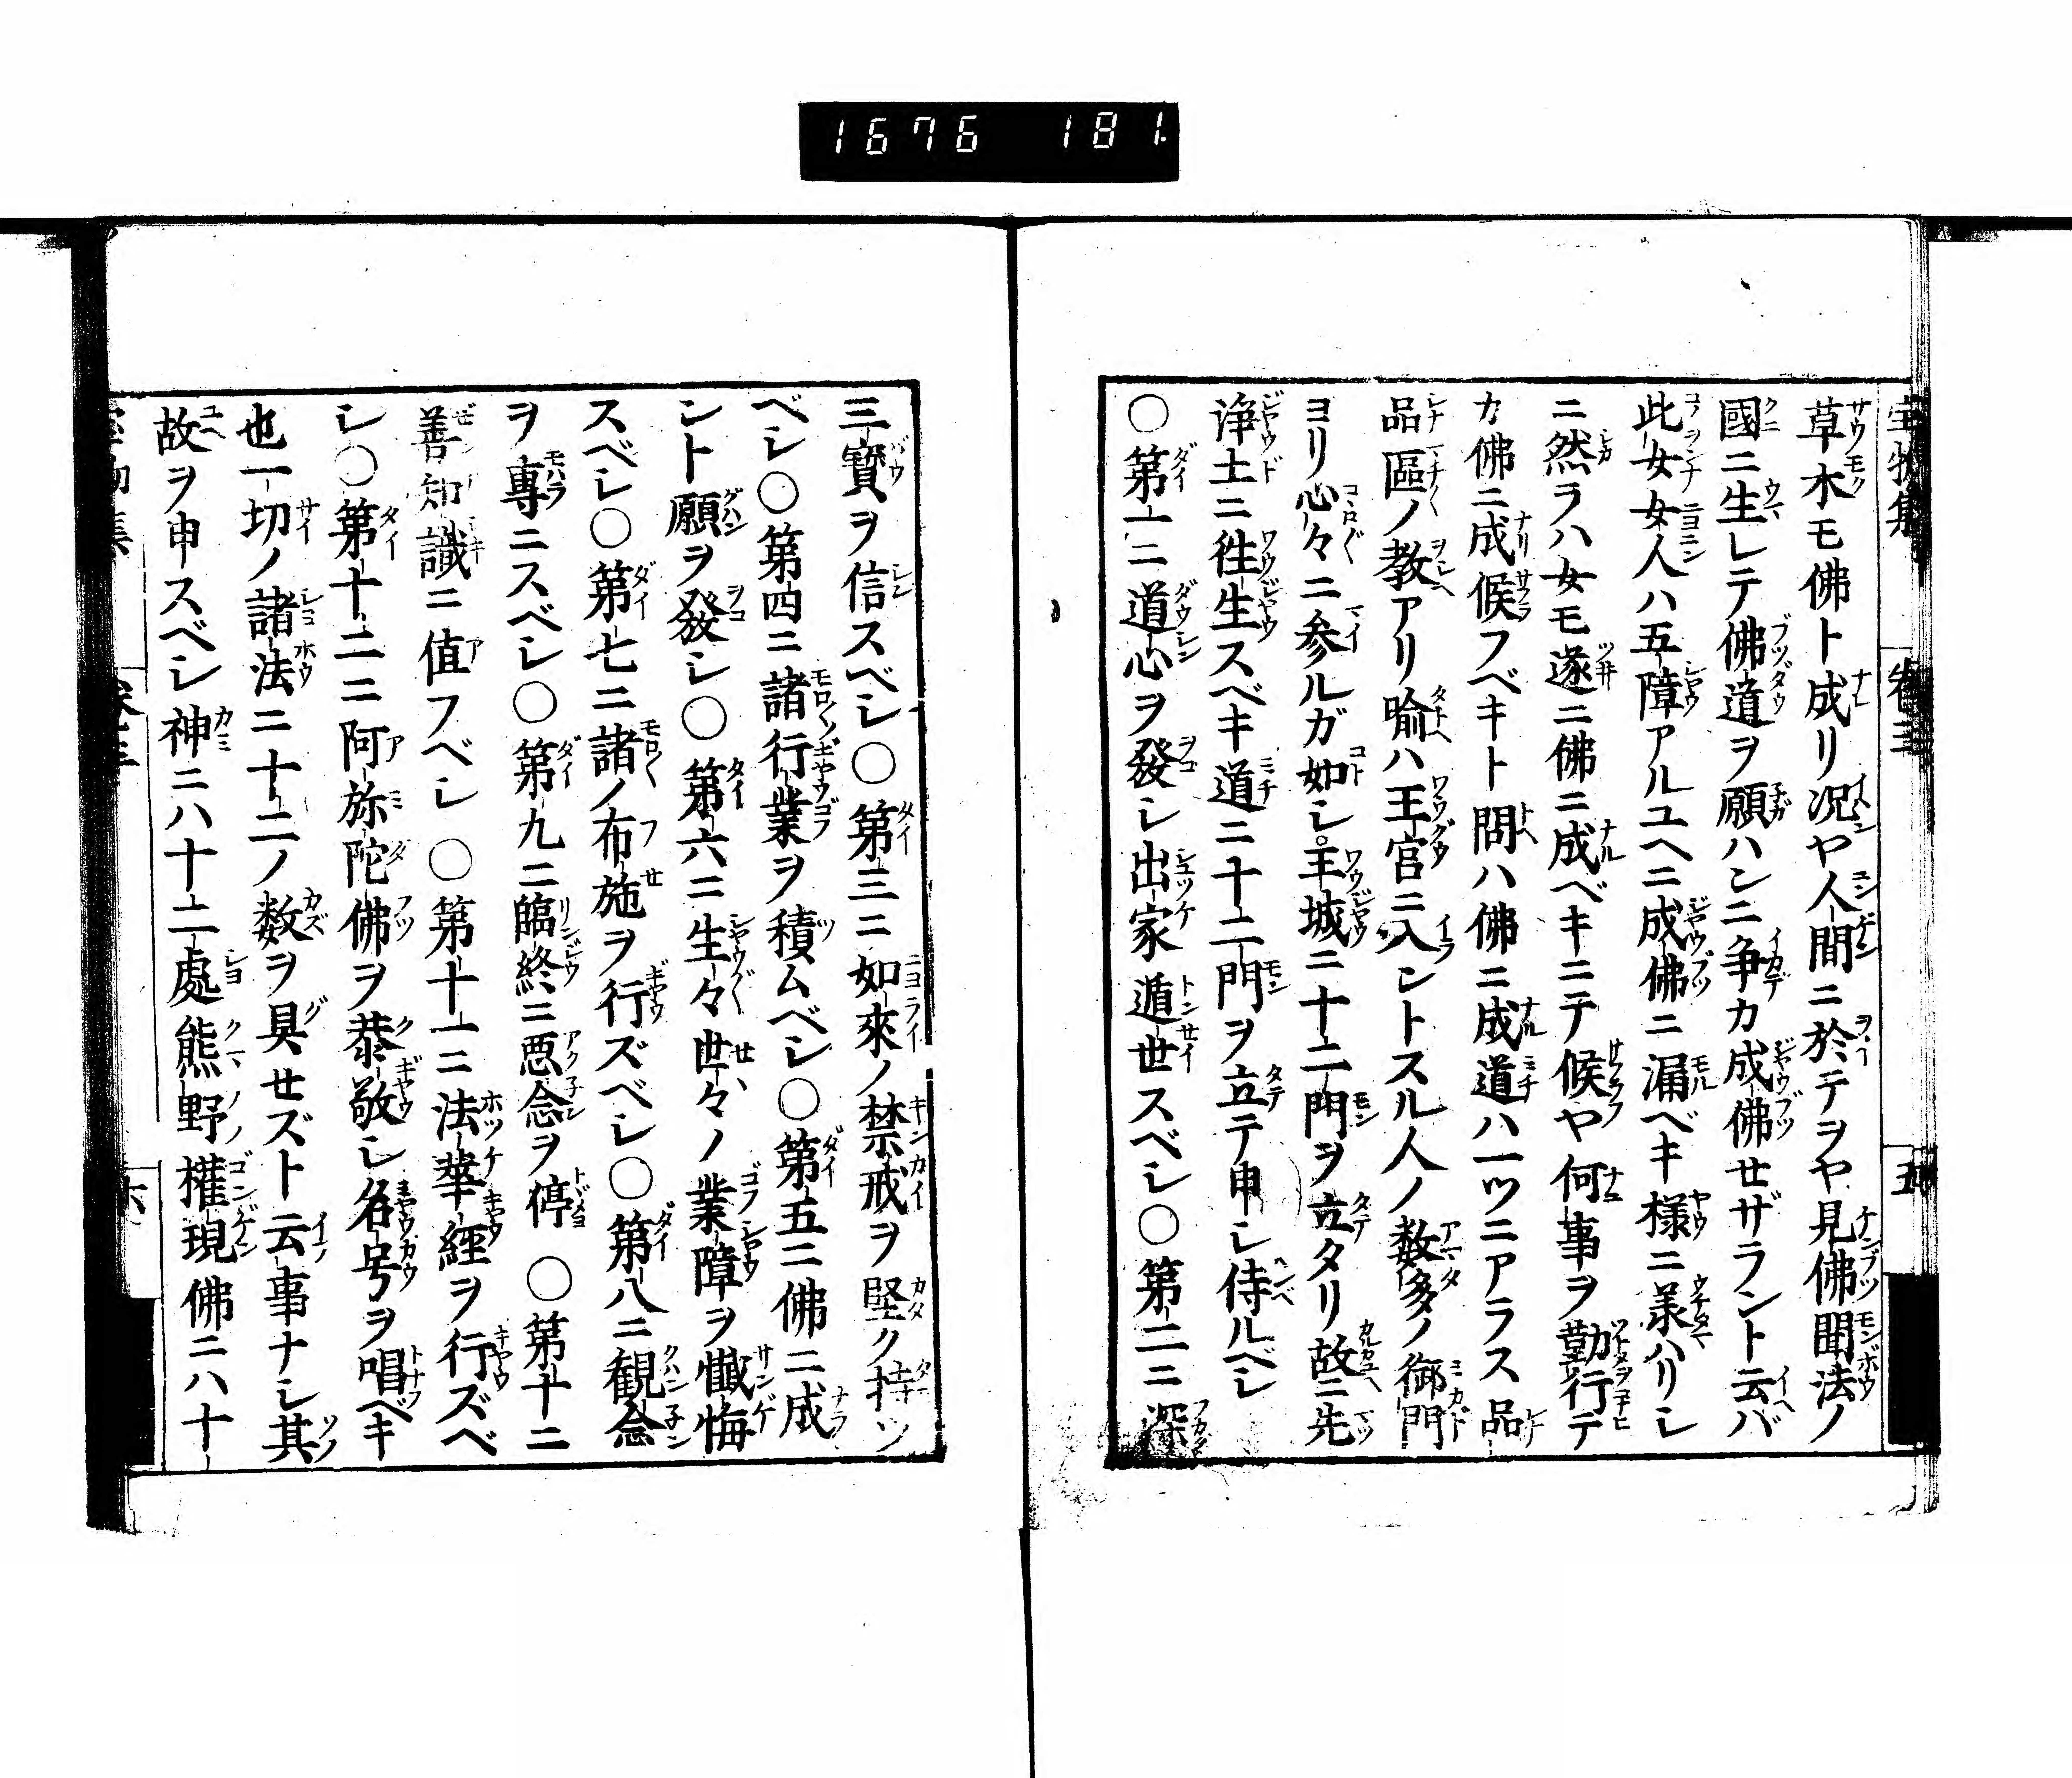 1676 181
草木モ佛ト成リ况ヤ人間ニ於テヲヤ見佛聞法ノ
國ニ生レテ佛道ヲ願ハンニ争カ成佛セザラント云バ
此女女人ハ五障アルユヘニ成佛ニ漏ベキ様ニ羕ハリシ
ニ然ラハ女モ遂ニ佛ニ成ベキニテ候ヤ何事ヲ勤行テ
カ佛ニ成候フベキト問ハ佛ニ成道ハ一ツニアラス品
品區ノ教アリ喩ハ王宮ニ入ントスル人ノ数多ノ御門
ヨリ心々ニ参ルガ如シ王城ニ十二門ヲ立タリ故ニ先
浄土ニ徃生スベキ道ニ十二門ヲ立テ申シ侍ルベシ
〇第一ニ道心ヲ發シ出家遁世スベシ〇第二ニ深
三寳ヲ信スベシ〇第三ニ如來ノ禁戒ヲ堅ク持ツ
ベシ〇第四ニ諸行業ヲ積ムベシ〇第五ニ佛ニ成
ント願ヲ發シ〇第六ニ生々世々ノ業障ヲ懴悔
スベシ〇第七ニ諸ノ布施ヲ行ズベシ〇第八ニ観念
ヲ專ニスベシ〇第九ニ臨終ニ悪念ヲ停〇第十ニ
善知識ニ値フベシ〇第十一ニ法華經ヲ行ズベ
シ〇第十二ニ阿弥陀佛ヲ恭敬シ名号ヲ唱ベキ
也一切ノ諸法ニ十二ノ数ヲ具セズト云事ナシ其
故ヲ申スベシ神ニハ十二處熊野権現佛ニハ十
寳物集 卷三 五